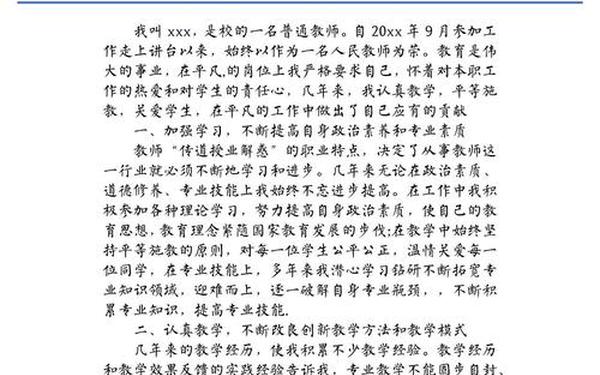 我叫 xxx，是校的一名普通教师。自 20xx 年 9 月参加工
作走上讲台以来，始终以作为一名人民教师为荣。教育是伟
大的事业，在平凡.的岗位上我严格要求自己，怀着对本职工
作的热爱和对学生的责任心，几年来，我认真教学，平等施
教，关爱学生，在平凡的工作中做出了自己应有的贡献
一、加强学习，不断提高自身政治素养和专业素质
教师“传道授业解惑”的职业特点，决定了从事教师这
一行业就必须不断地学习和进步。几年来无论在政治素质、
道德修养、专业技能上我始终不忘进步提高。在工作中我积
极参加各种理论学习，努力提高自身政治素质，使自己的教
育思想，教育理念紧随国家教育发展的步伐；在教学中始终坚
持平等施教的原则，对每一位学生公平公正，温情关爱每一
位同学，在专业技能上，多年来我潜心学习钻研不断拓宽专
业知识领域，迎难而上，逐一破解自身专业瓶颈，，不断积
累专业知识，提高专业技能.
二、认真教学，不断改良创新教学方法和教学模式
几年来的教学经历，使我积累不少教学经验。教学经历
和教学效果反馈的实践经验告诉我，专业教学不能固步自封、